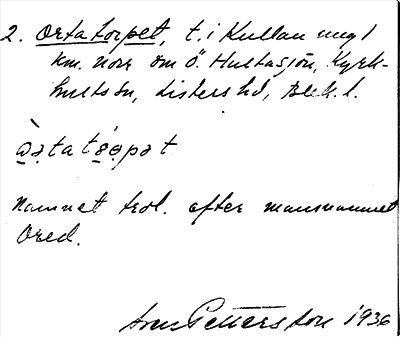 2. Ortatorpet, t. i Kullan ungf
km. norr om ö. Hultasjön, Kyrk-
hults sn, Listers hd, Blek. l.
Namnet trol. efter mansnamnet
Ored.
Pettersson 1936